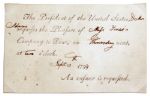 The President of the United States
requests the Pleasure of Miss
Company to Dine, on Thursday next,
at two o'Clock.
Sept. 17
An answer is requested.